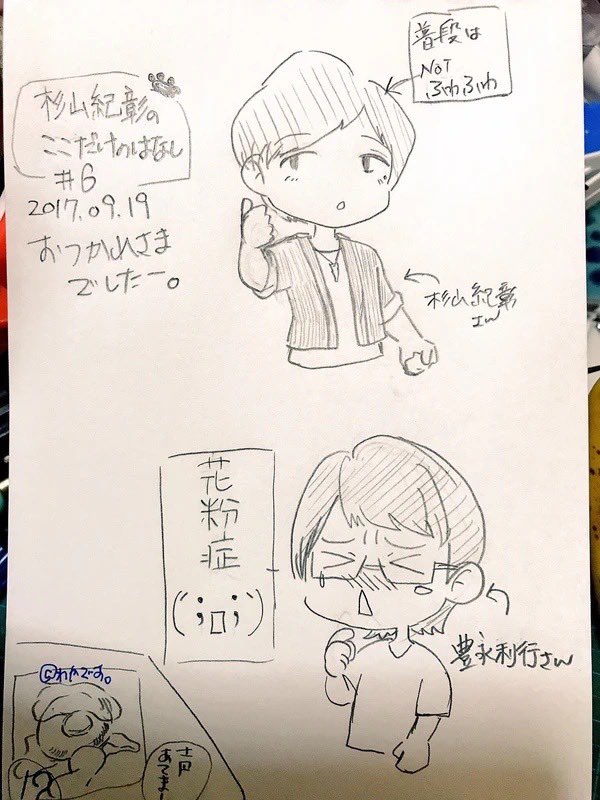 杉山紀彰の
ここだけのはなし
#6
2017.09.19
おつかれさま
でしたー。
普段は
NOT
ふわふわ
杉山紀彰
さん
花粉症
豊永利行さん